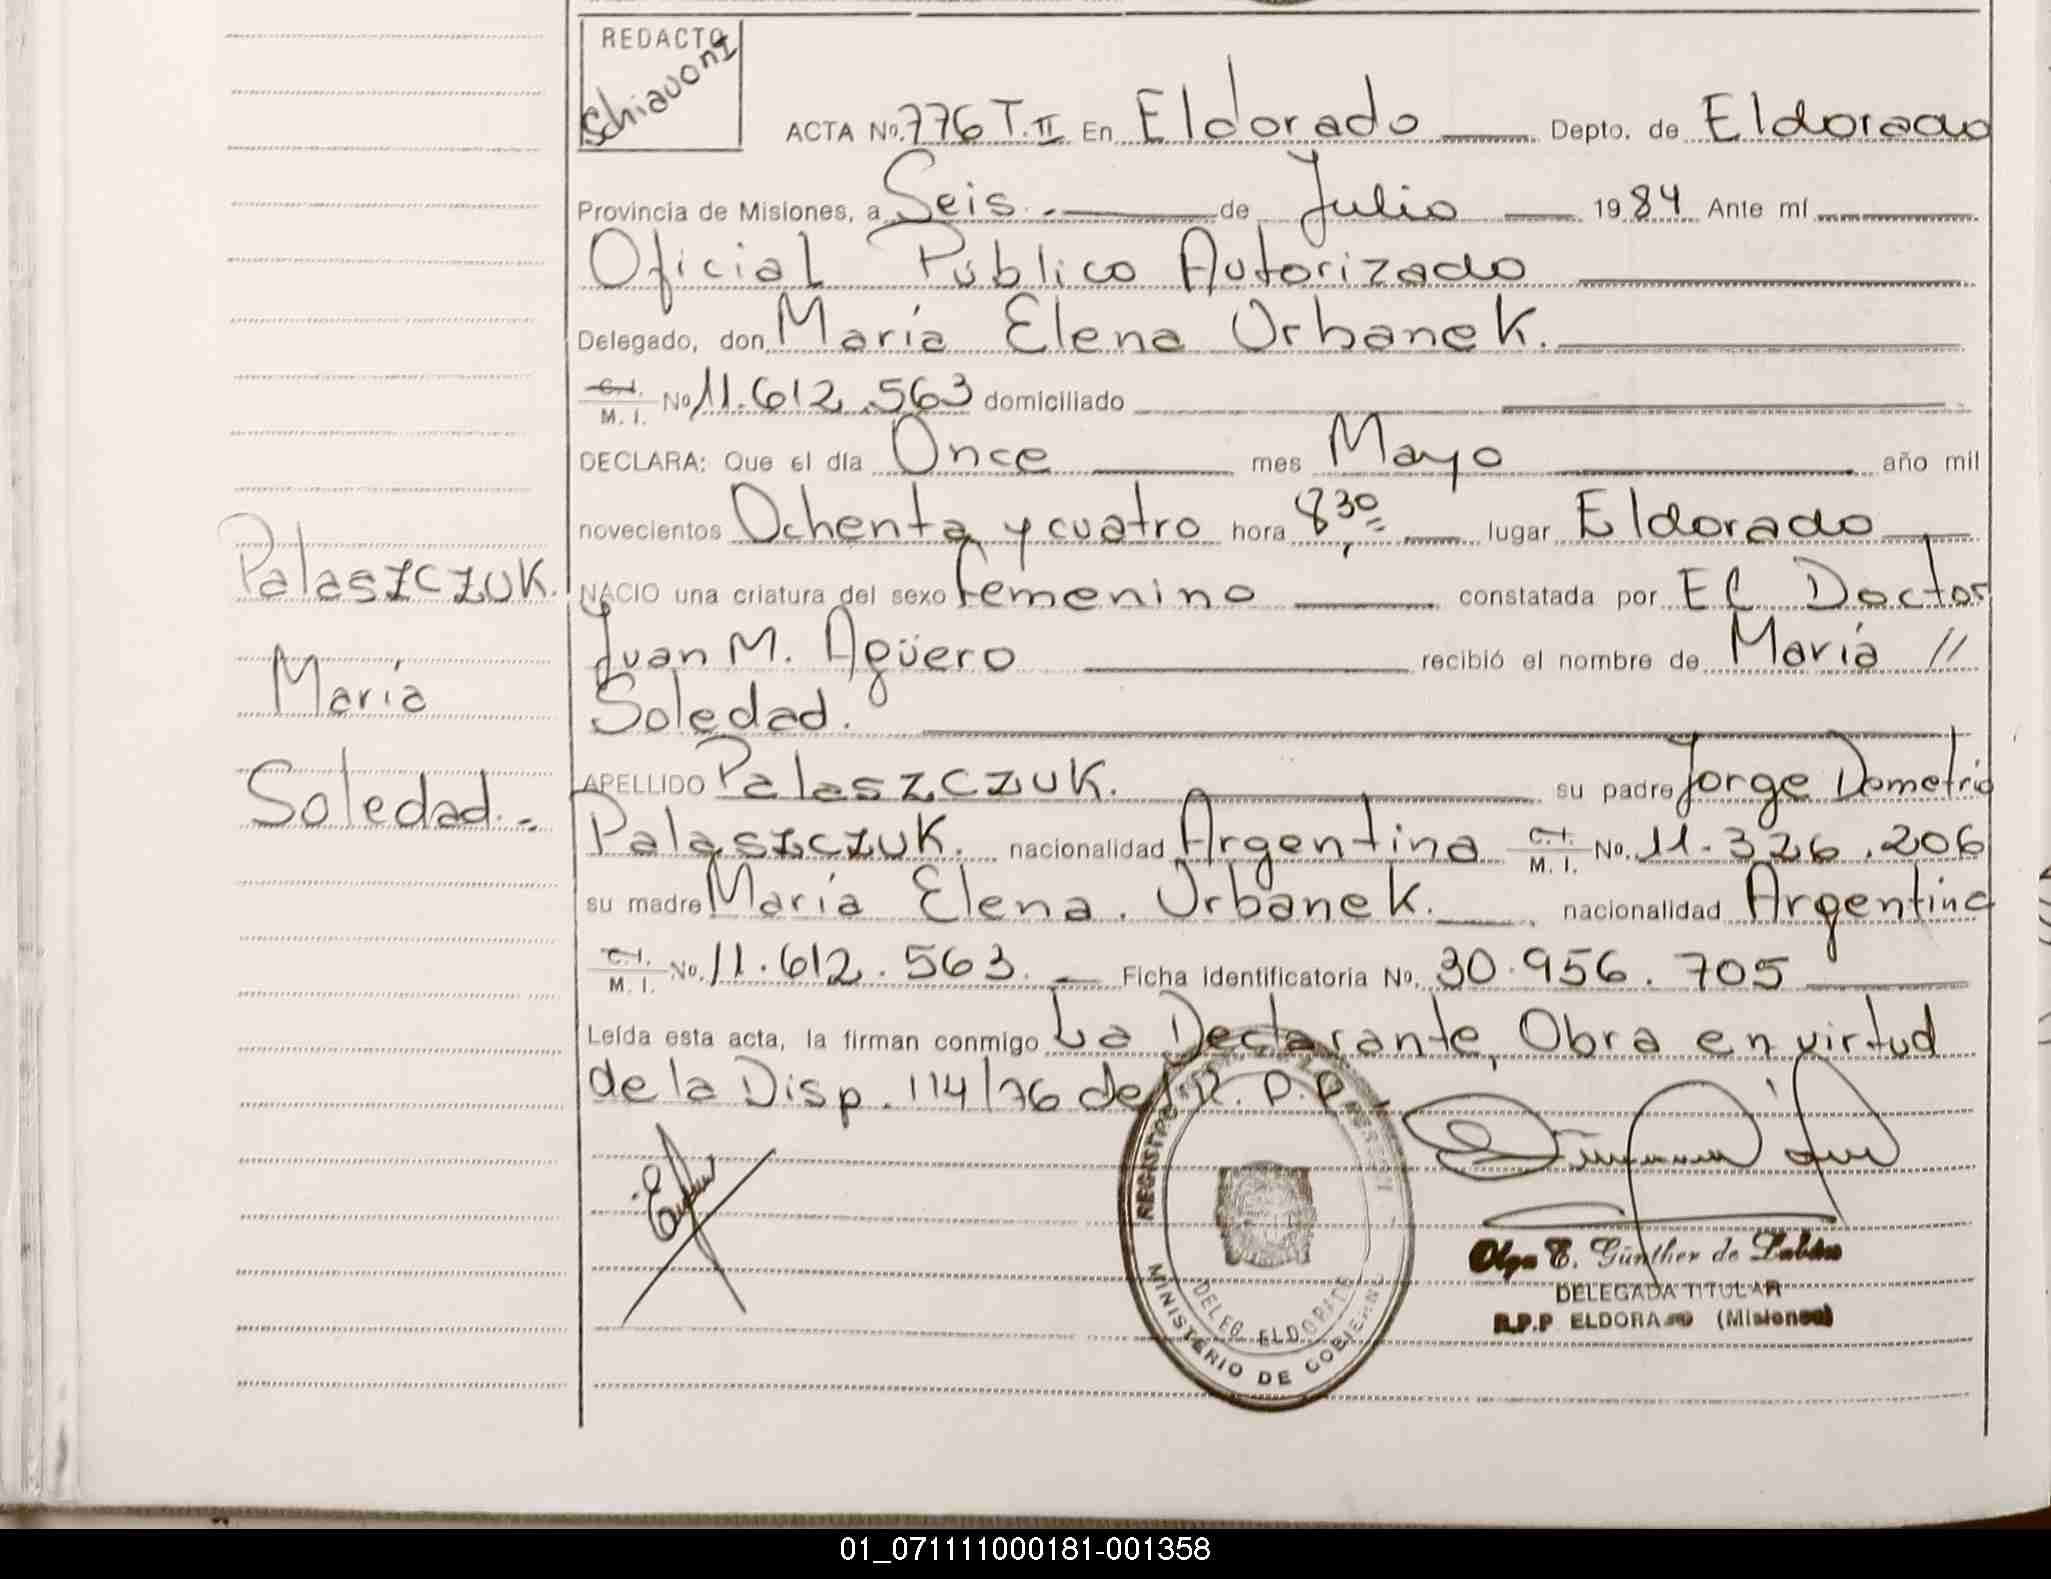 REDACTO
Schiavoni
ACTA No. 776 T. II En Eldorado Depto. de Eldorado
Provincia de Misiones, a Seis.- de Julio 1984 Ante mí
Oficial Público Autorizado
Delegado, don María Elena Urbanek.
C.I. M. I. No 11.612.563 domiciliado
DECLARA: Que el día Once mes Mayo año mil
novecientos Ochenta y cuatro hora 8,30 lugar Eldorado
NACIO una criatura del sexo femenino constatada por El Doctor
Juan M. Agüero recibió el nombre de María //
Soledad.
APELLIDO Palaszczuk. su padre Jorge Demetrio
Palaszczuk. nacionalidad Argentina C.I. M. I. No. 11.326.206
su madre María Elena. Urbanek. nacionalidad Argentina
C.I. M. I. No. 11.612.563. Ficha identificatoria No. 30.956.705
Leída esta acta, la firman conmigo La Declarante, Obra en virtud
de la Disp. 114/76 del R.P.P.
Palaszczuk.
María
Soledad.-
REGISTRO
MINISTERIO DE GOBIERNO
DELEG. ELDORADO
Olga E. Günther de
DELEGADA TITULAR
R.P.P ELDORADO (Misiones)
01_071111000181-001358